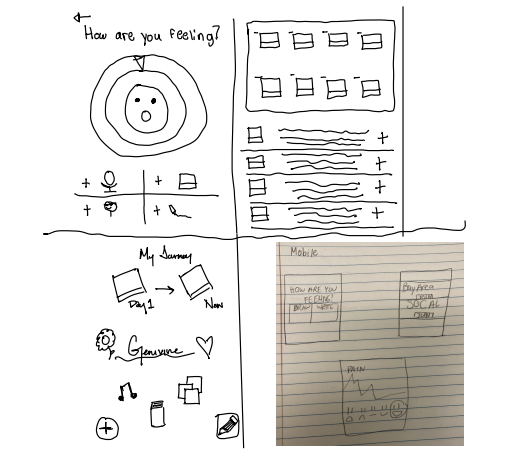 How are you feeling?
My Journey
Day 1
Now
Genuine
Mobile
HOW ARE YOU
FEELING?
DRAW WRITE
Bay Area
SOCAL
PAIN